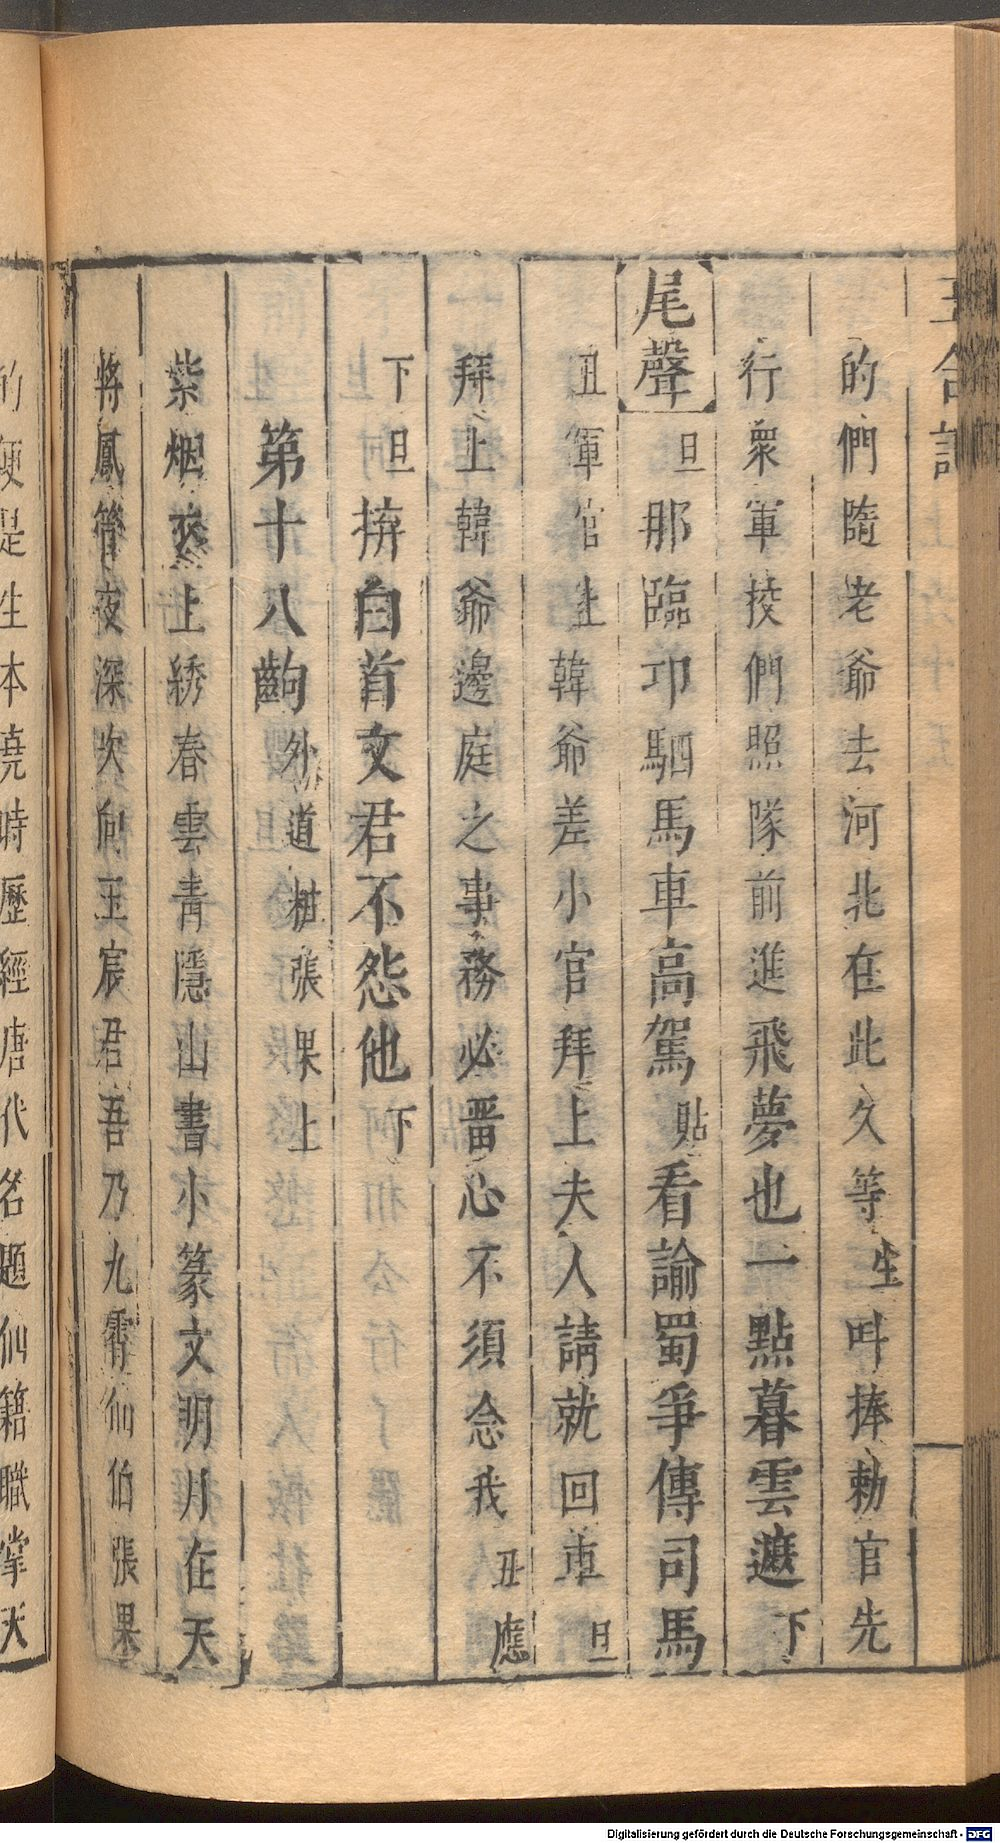 玉合記
的們隨老爺去河北在此久等生叫捧勅官先
行衆軍挍們照隊前進飛夢也一點暮雲遮下
尾聲旦那臨卭駟馬車高駕貼看諭蜀爭傳司馬
丑軍官上韓爺差小官拜上夫人請就回車旦
拜上韓爺邊庭之事務必畱心不須念我丑應
下旦拚白首文君不怨他下
第十八齣外道粧張果上
紫烟衣上綉春雲青隱山書小篆文明月在天
將鳳管夜深次向玉宸君吾乃九霄仙伯張果
的便是生本堯時歷經唐代名題仙籍職掌天
Digitalisierung gefördert durch die Deutsche Forschungsgemeinschaft - DFG